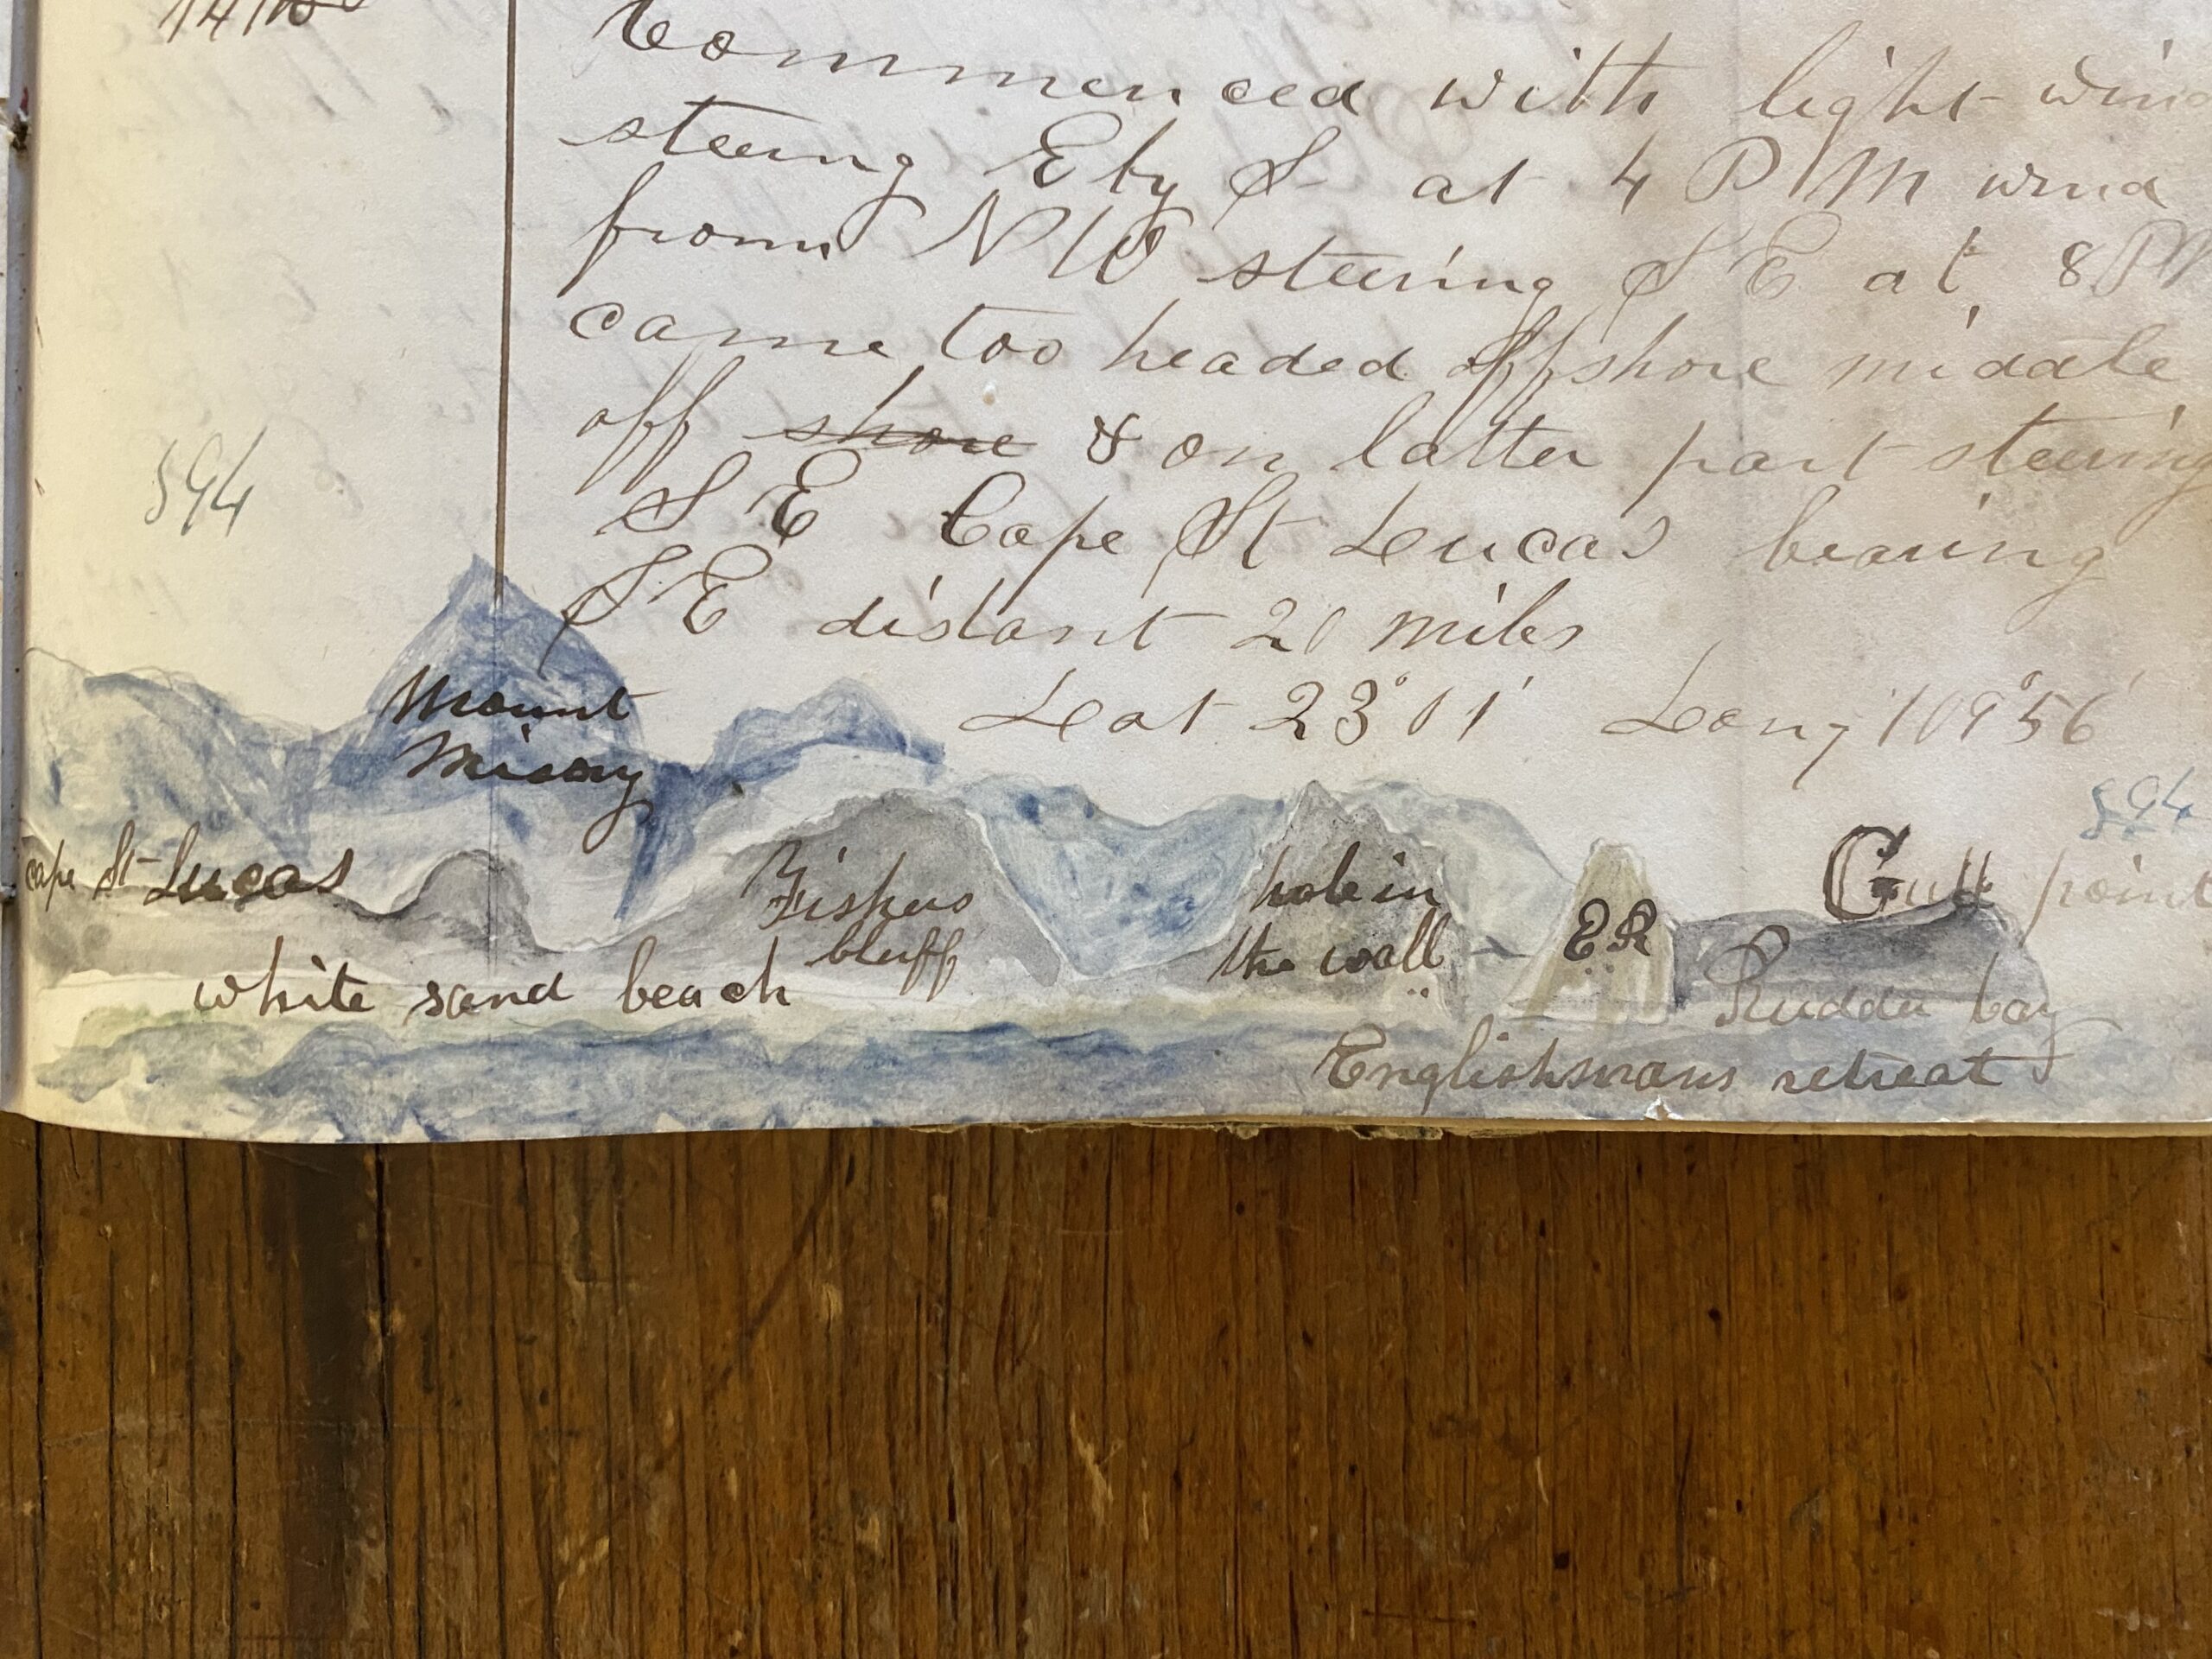 14th
Commenced with light wind
steering E by S at 4 PM wind
from NW steering S E at 8 PM
came too headed offshore middle
off shore & on latter part steering
S E Cape St Lucas bearing
S E distant 20 miles
Lat 23° 01' Long 109° 56'
Mount
Cape St Lucas
Fishers
bluff
hole in
the wall
ER
point
white sand beach
Rudder bay
Englishmans retreat